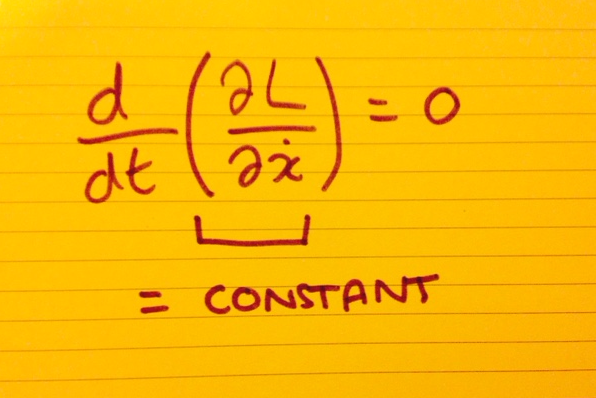 d/dt (∂L/∂ẋ) = 0
= CONSTANT